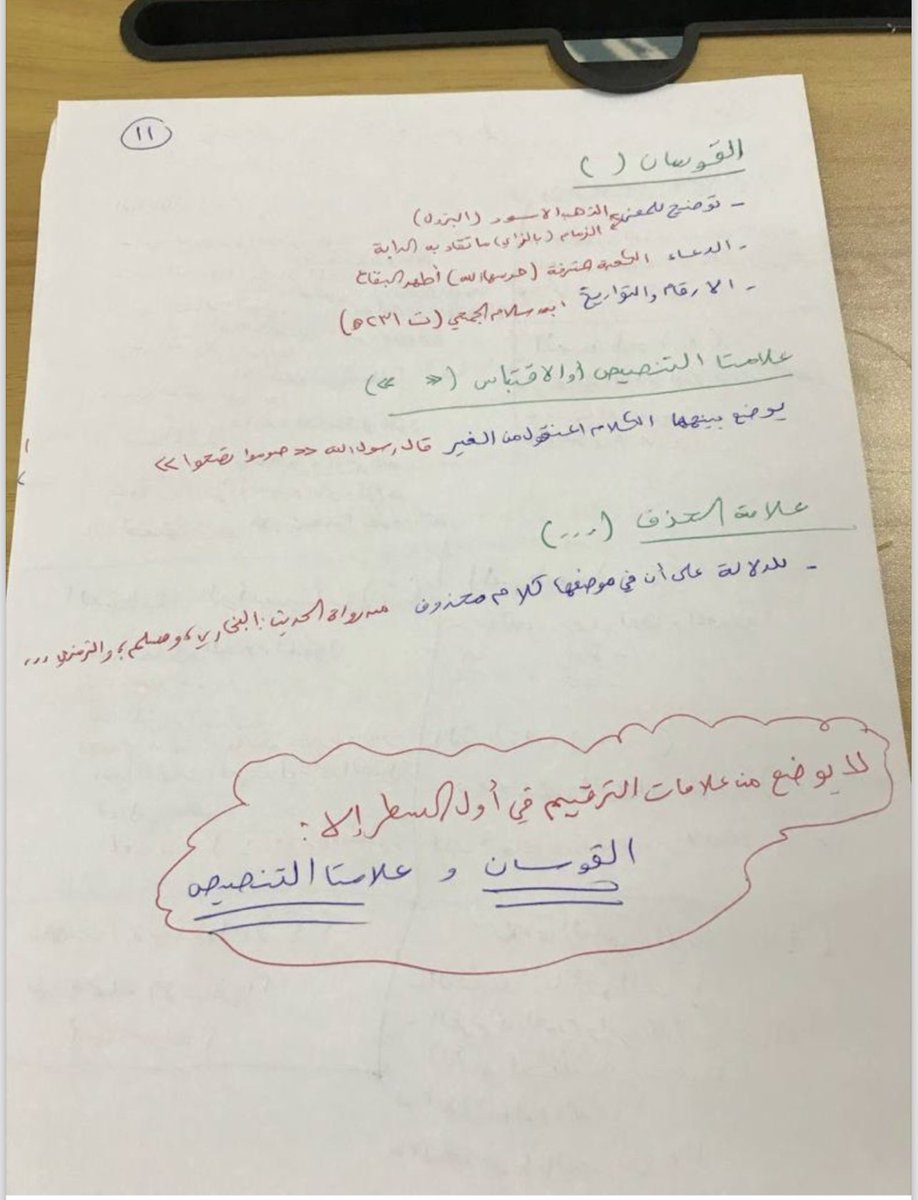 ١١
القوسان ( )
- توضيح للمعنى الذهب الاسود (البترول)
الزمام (بالزاي) ما تقاد به الدابة
- الدعاء الكعبة المشرفة (حرسها الله) أطهر البقاع
- الارقام والتواريخ ابن سلام الجمحي (ت ٢٣١ هـ)
علامتا التنصيص أو الاقتباس (« »)
يوضع بينهما الكلام المنقول من الغير قال رسول الله «صوموا تصحوا»
علامة الحذف (...)
- للدلالة على أن في موضعها كلام محذوف من رواة الحديث: البخاري، ومسلم، والترمذي ...
لا يوضع من علامات الترقيم في أول السطر إلا:
القوسان و علامتا التنصيص